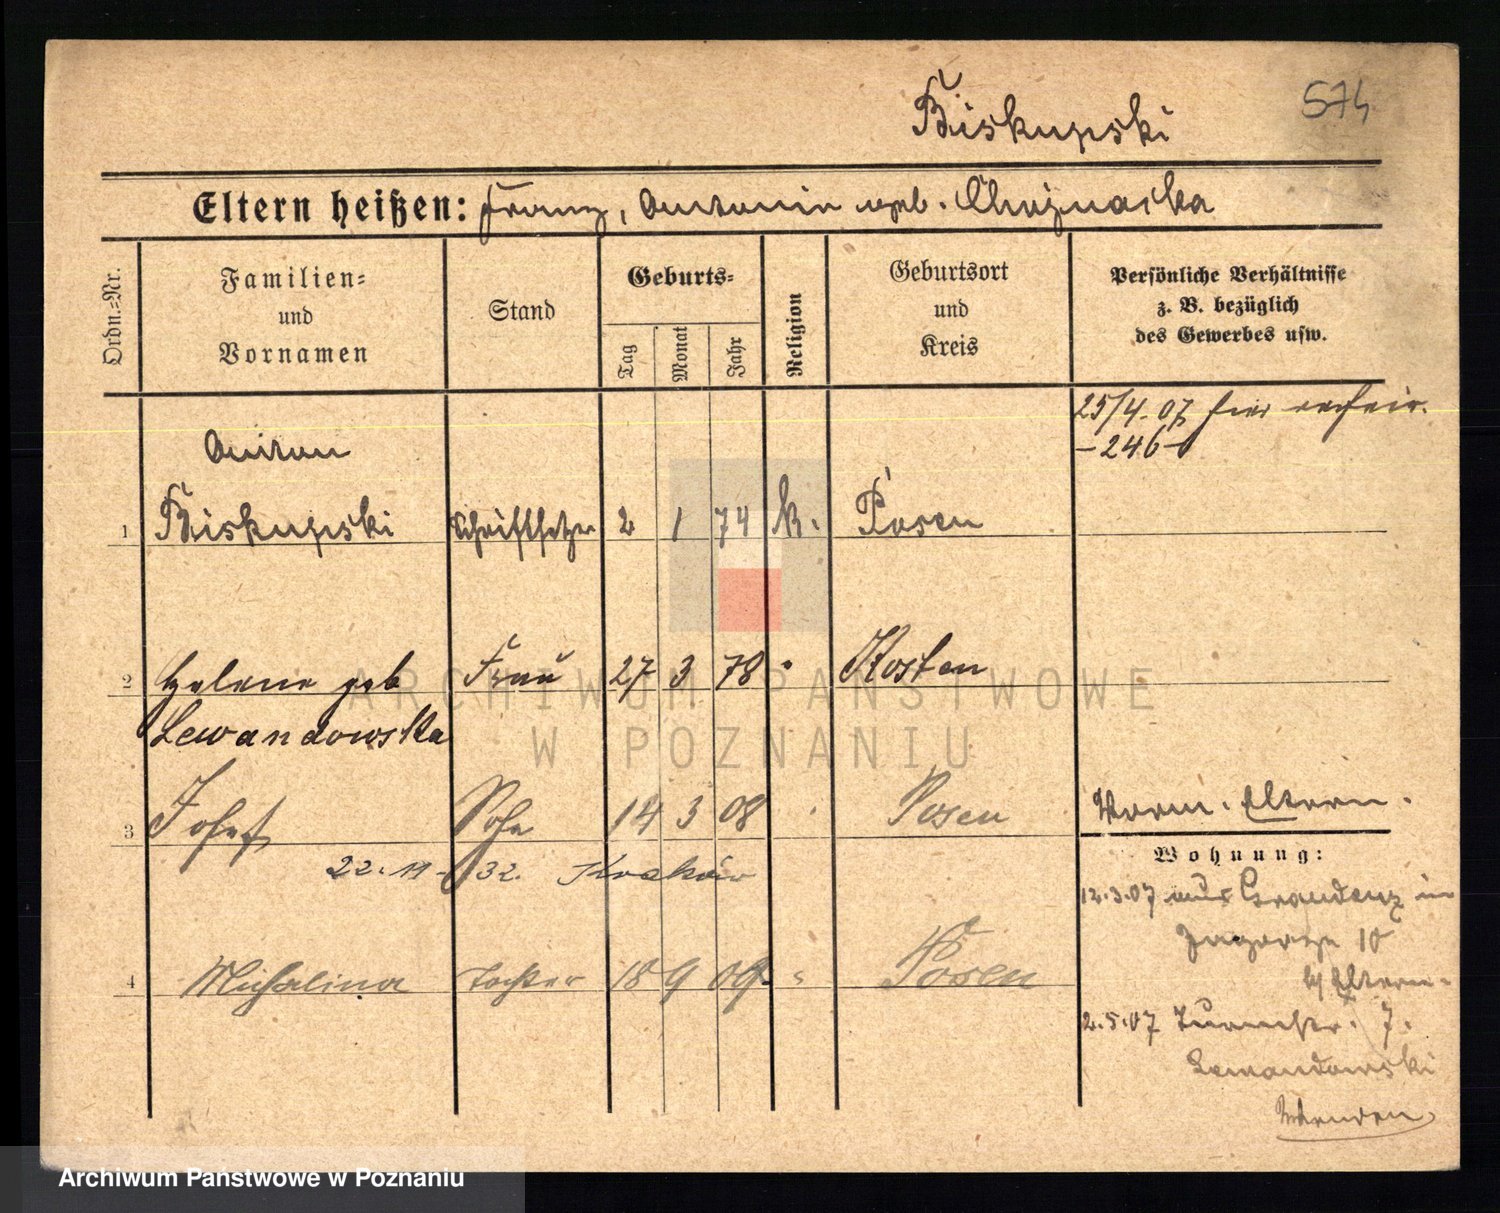 574
Biskupski
Eltern heißen: Franz, Antonie geb. Chojnacka
Ordn.-Nr.
Familien-
und
Vornamen
Stand
Geburts-
Tag
Monat
Jahr
Religion
Geburtsort
und
Kreis
Persönliche Verhältnisse
z. B. bezüglich
des Gewerbes usw.
25/4. 07 hier
-246-
Anton
1 Biskupski Schriftsetzer 2 1 74 k. Posen
2 Helene geb Frau 27 3 78 " Kosten
Lewandowska
3 Josef Sohn 14 3 08 Posen
Vorm. Eltern.
22. 11. 32. Kraków
Wohnung:
12.3.07 aus Graudenz in
10
b/ Eltern.
4 Michalina Tochter 18 9 09 " Posen
2.5.07 Turmstr. 7.
Lewandowski
ARCHIWUM PAŃSTWOWE
W POZNANIU
Archiwum Państwowe w Poznaniu